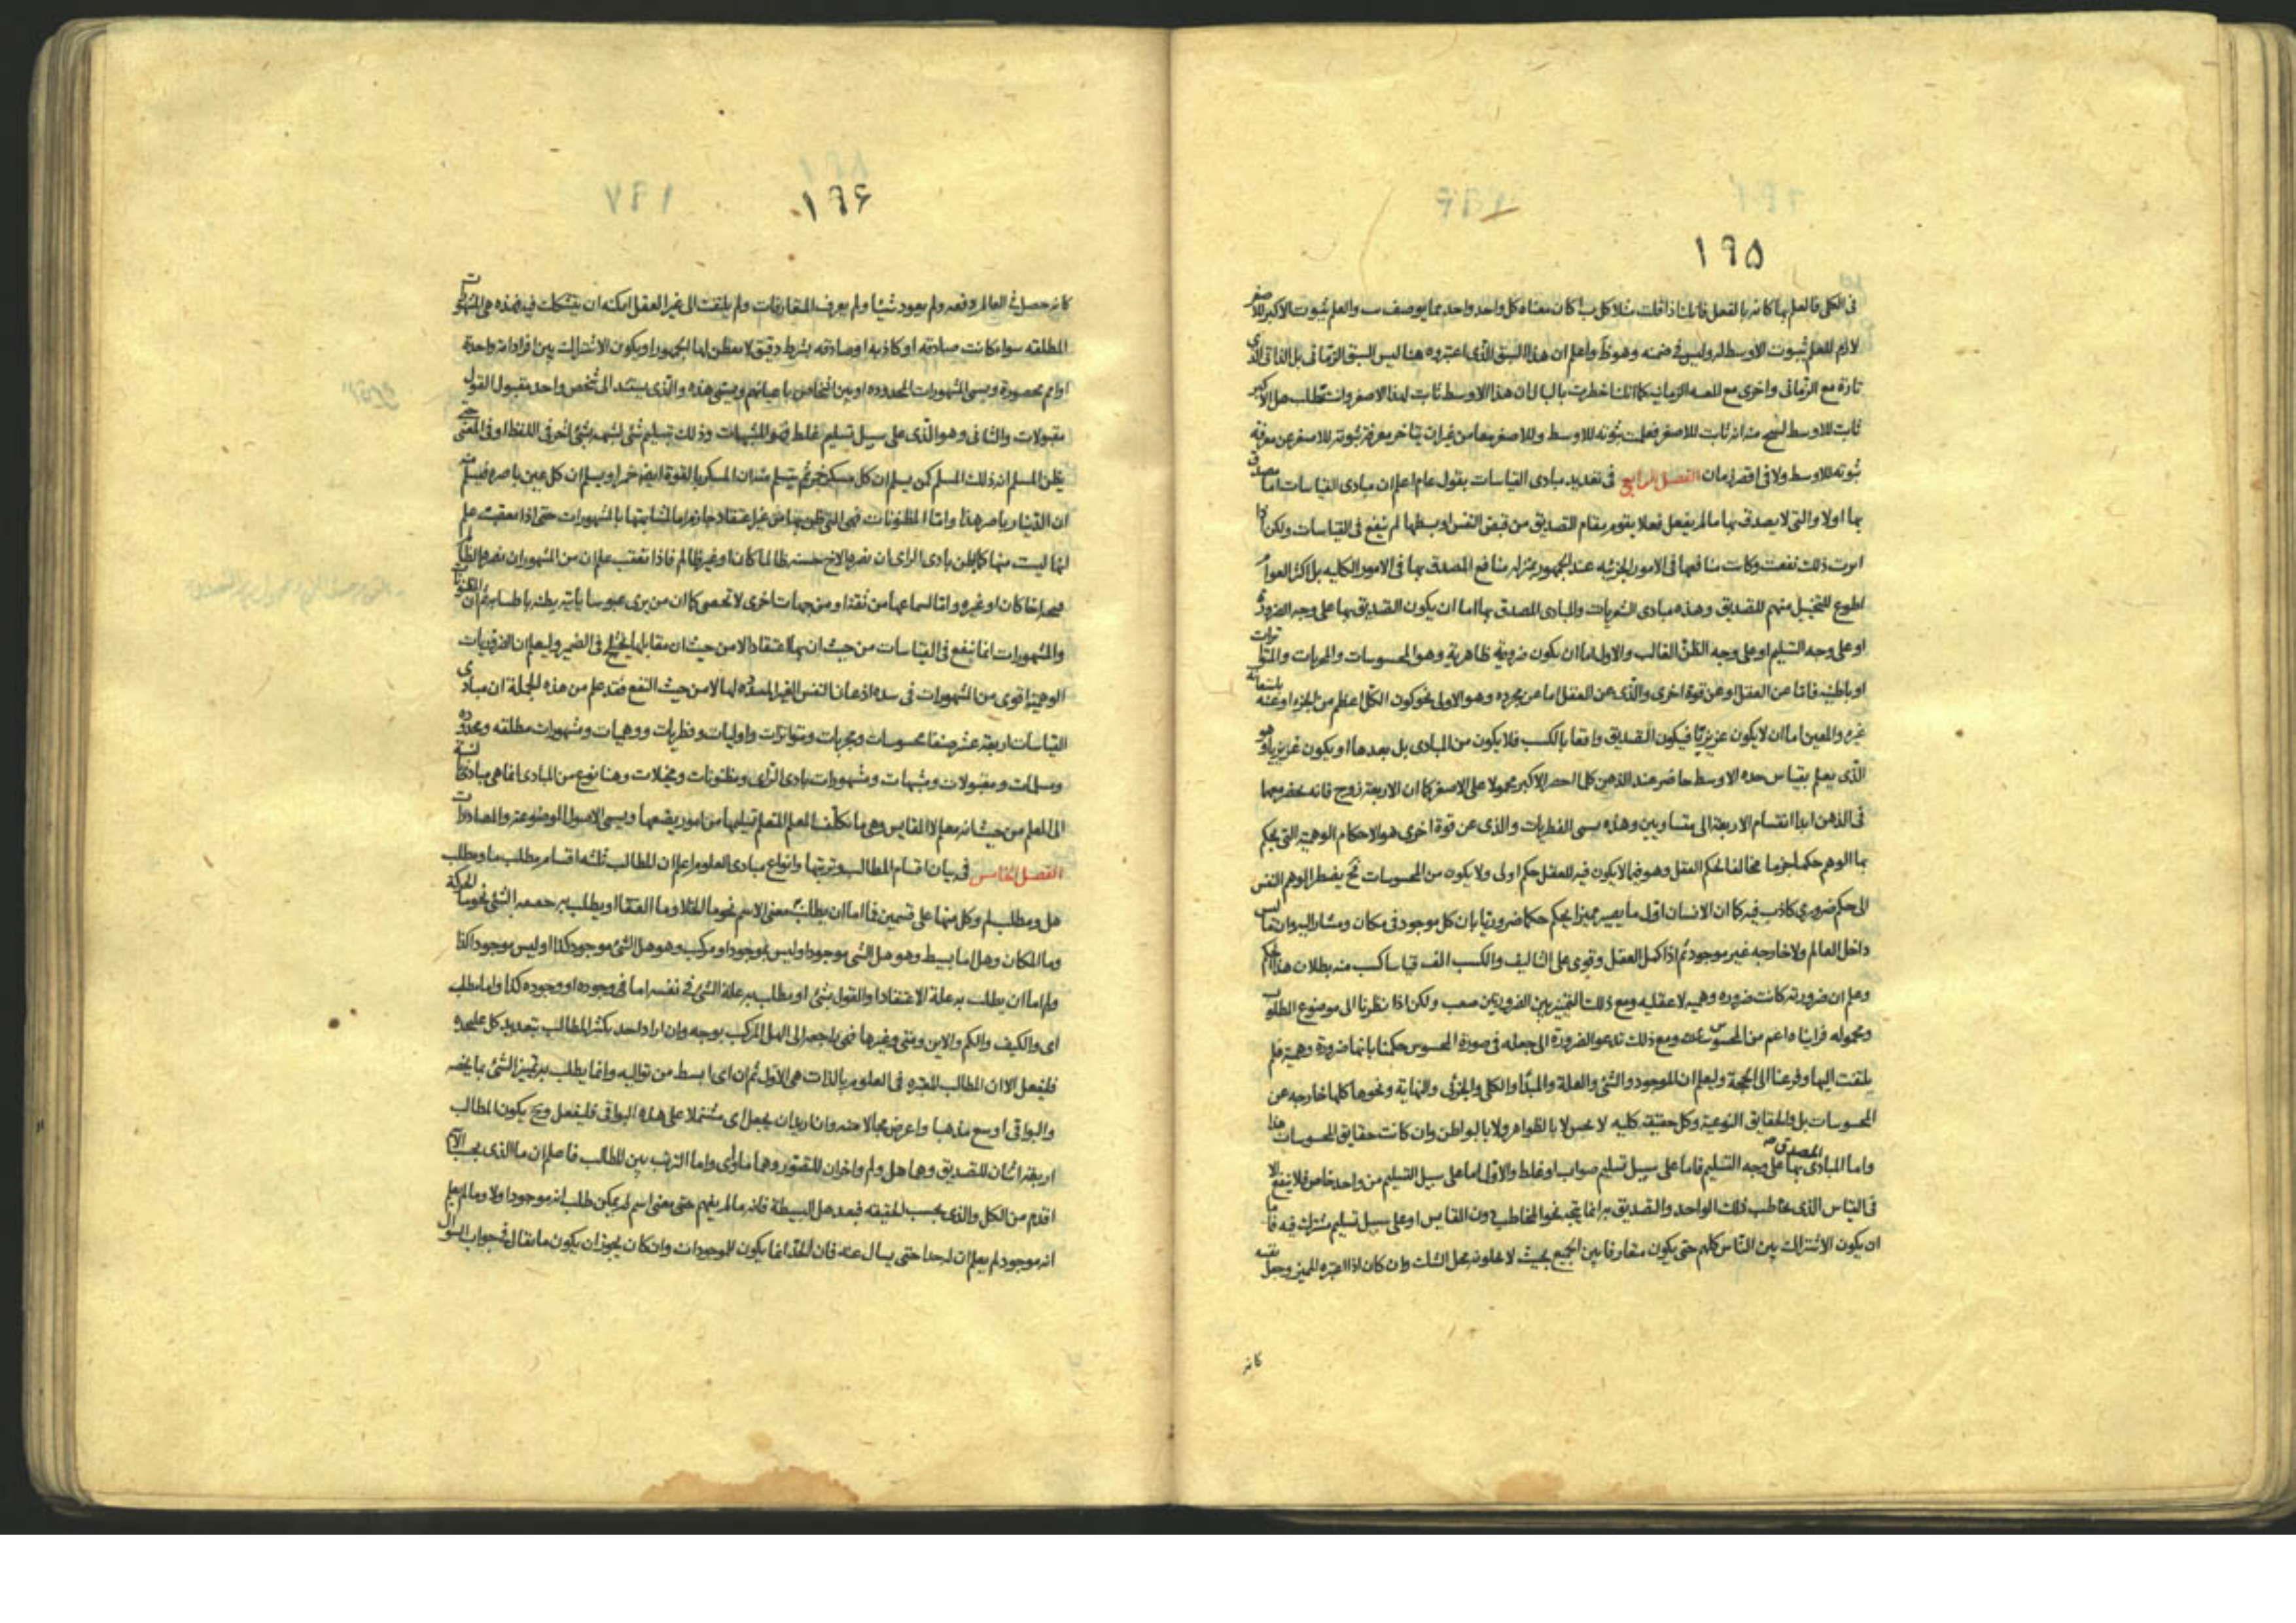 ١٩٥
فى الكلى فالعلم بها كانه بالفعل فانك اذا قلت مثلا كل ب ا كان معناه كل واحد واحد مما يوصف ب والعلم بثبوت الاكبر للاصغر
لازم للعلم بثبوت الاوسط له وليس فى ضمنه وهو واعلم ان هذا السبق الذى اعتبروه هنا ليس السبق الزمانى بل الذاتى الذى
تارة مع الزمانى واخرى مع الزمانيه كما انك اخطرت بالبال ان هذا الاوسط ثابت لهذا الاصغر وانت تطلب هل الاكبر
ثابت للاوسط منه انه ثابت للاصغر فعلمت ثبوته للاوسط وللاصغر معا من غير ان يتاخر معرفة ثبوته للاصغر عن معرفة
ثبوته للاوسط ولا فى اقصر زمان الفصل الرابع فى تعديد مبادى القياسات بقول عام اعلم ان مبادى القياسات اما مصدق
بها اولا والتى لا يصدق بها ما لم يفعل فعلا يقوم مقام التصديق من قبض النفس او بسطها لم ينفع فى القياسات ولكن اذا
اثرت ذلك نفعت وكانت منافعها فى الامور الجزئيه عند الجمهور بمنزله منافع المصدق بها فى الامور الكليه بل اكثر العوام
اطوع للتخيل منهم للتصديق وهذه مبادى الشعريات والمبادى المصدق بها اما ان يكون التصديق بها على وجه الضرورة
او على وجه التسليم او على وجه الظن الغالب والاول اما ان يكون ضرورية ظاهرية وهو المحسوسات والمجربات والمتواترات
او باطنية فاما عن العقل او عن قوة اخرى والذى عن العقل اما عن مجرده وهو الاولى نحو كون الكل اعظم من الجزء او عنه باستعانة
غيره والمعين اما ان لا يكون غريزيا فيكون التصديق واقعا بالكسب فلا يكون من المبادى بل بعدها او يكون غريزيا وهو
الذى يعلم بقياس حده الاوسط حاضر عند الذهن كلما احضر الاكبر محمولا على الاصغر كما ان الاربعة زوج فانه
فى الذهن ابدا انقسام الاربعة الى متساويين وهذه يسمى الفطريات والذى عن قوة اخرى هو الاحكام الوهمية التى يحكم
بها الوهم حكما جزما مخالفا لحكم العقل وهو فيما لا يكون فيه للعقل حكم اولى ولا يكون من المحسوسات فح يضطر الوهم النفس
الى حكم ضرورى كاذب فيه كما ان الانسان اول ما يصير مميزا يحكم حكما ضروريا بان كل موجود فى مكان ومشار اليه وان ما ليس
داخل العالم ولا خارجه غير موجود ثم اذا كمل العقل وقوى على التاليف والكسب الف قياسا كسب منه بطلان هذا الحكم
وعلم ان ضرورته كانت ضرورة وهميه لا عقليه ومع ذلك التمييز بين الضرورتين صعب ولكن اذا نظرنا الى موضوع المطلوب
ومحموله فرايناه اعم من المحسوس ومع ذلك تدعو الضرورة الى جعله فى صورة المحسوس حكمنا بانها ضرورة وهمية فلم
يلتفت اليها وفرعنا الى الحجة وليعلم ان الموجود والشئ والعلة والمبدأ والكلى والجزئى والنهاية ونحوها كلها خارجه عن
المحسوسات بل والحقايق النوعية وكل حقيقه كليه لا تحس لا بالظواهر ولا بالبواطن وان كانت حقايق المحسوسات هذا
واما المبادى المصدق بها على وجه التسليم فاما على سبيل تسليم صواب او غلط والاول اما على سبيل التسليم من واحد خاص فلا ينفع الا
فى القياس الذى يخاطب ذلك الواحد والتصديق به انما يتجه نحو المخاطب دون القايس او على سبيل تسليم مشترك فيه فاما
ان يكون الاشتراك بين الناس كلهم حتى يكون متعارفا بين الجميع بحيث لا يخلونه محل الشك وان كان اذا اعتبره المميز وجعل نفسه
كانه
١٩۶
كانه حصل فى العالم دفعه ولم يعود شيئا ولم يعرف المتعارفات ولم يلتفت الى غير العقل امكنه ان يتشكك فيه فهذه هى المشهورات
المطلقه سواء كانت صادقه او كاذبة او صادقه بشرط دقيق لا يفطن لها الجمهور او يكون الاشتراك بين افراد امة واحدة
او امم محصورة ويسمى المشهورات المحدوده او بين اشخاص باعيانهم ويسمى هذه والذى يستند الى شخص واحد مقبول القول
مقبولات والثانى وهو الذى على سبيل تسليم غلط فهو المشبهات وذلك تسليم شئ لشبهه بشئ اخر فى اللفظ او فى المعنى
يظن المسلم انه ذلك المسلم كمن يسلم ان كل مسكر خمر ثم يتسلم منه ان المسكر بالقوة ايضا خمر او يسلم ان كل عين باصره فيسلم منه
ان الدينار باصر هذا واما المظنونات فهى التى يظن بها من غير اعتقاد جازم اما لمشابهتها بالمشهورات حتى اذا تعقبت علم
انها ليست منها كما يظن بادى الراى ان نصرة الاخ حسنه ظالما كان او غير ظالم فاذا تعقب علم ان من المشهور ان نصرة الظالم
اخا كان او غيره واما لسماعها من ثقة او من جهات اخرى لا تحصى كما ان من يرى عبوسا ياتيه يظنه باطشا به ثم ان المظنونات
والمشهورات انما ينفع فى القياسات من حيث ان بها اعتقادا لا من حيث ان مقابلها يختلج فى الضمير وليعلم ان الضروريات
الوهمية اقوى من المشهورات فى اذعان النفس الغير لها لا من حيث النفع فقد علم من هذه الجملة ان مبادى
القياسات اربعة عشر صنفا محسوسات ومجربات ومتواترات واوليات وفطريات ووهميات ومشهورات مطلقه ومحدوده
ومسلمات ومقبولات ومشبهات ومشهورات بادى الراى ومظنونات ومخيلات وهنا نوع من المبادى انما هى مبادى
الى المعلم من حيث انه معلم لا القايس وهى ما تكلف المعلم المتعلم تسليمها من امور يضعها ويسمى الاصول الموضوعة والمصادرات
الفصل الخامس فى بيان اقسام المطالب وترتيبها وانواع مبادى العلوم اعلم ان المطالب ثلثه اقسام مطلب ما ومطلب
هل ومطلب لم وكل منها على قسمين فما اما ان يطلب معنى الاسم نحو ما الخلاء وما العنقا او يطلب به الشئ نحو ما الحركة
وما المكان وهل اما بسيط وهو هل الشئ موجود او ليس بموجود او مركب وهو هل الشئ موجود كذا او ليس موجودا كذا
ولم اما ان يطلب به علة الاعتقاد والقول بشئ او يطلب به علة الشئ فى نفسه اما فى وجوده او وجوده كذا واما مطلب
اى والكيف والكم والاين ومتى وغيرها فهى راجعه الى الهل المركب بوجه وان اراد احد يكثر المطالب بتعديد كل عليحده
فليفعل الا ان المطالب المعتبرة فى العلوم بالذات هى الاول ثم ان اى ابسط من تواليه وانما يطلب به تمييز الشئ بما يخصه
والبواقى اوسع مذهبا واعرض مجالا منه وان اريد ان يجعل اى مشتملا على هذه البواقى فليفعل وح يكون المطالب
اربعة اثنان للتصديق وهما هل ولم واخران للتصور وهما ما واى واما الترتيب بين المطالب فاعلم ان ما الذى بحسب الاسم
اقدم من الكل والذى بحسب الحقيقه فبعد هل البسيطة فانه ما لم يفهم حتى معنى اسم لم يمكن طلب انه موجود او لا وما لم يعلم
انه موجود لم يعلم ان له حدا حتى يسال عنه فان الحد انما يكون للموجودات وان كان يجوز ان يكون ما يقال فى جواب السؤال